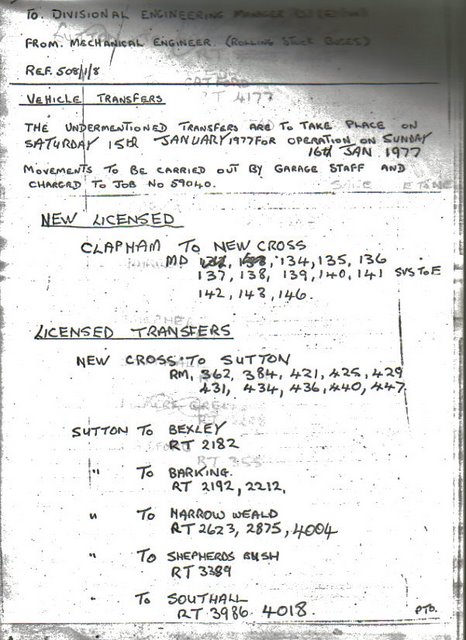 TO. DIVISIONAL ENGINEERING MANAGER
FROM. MECHANICAL ENGINEER. (ROLLING STOCK BUSES)
REF. 508/1/8
VEHICLE TRANSFERS
THE UNDERMENTIONED TRANSFERS ARE TO TAKE PLACE ON
SATURDAY 15th JANUARY 1977 FOR OPERATION ON SUNDAY
16th JAN 1977
MOVEMENTS TO BE CARRIED OUT BY GARAGE STAFF AND
CHARGED TO JOB NO 59040.
NEW LICENSED
CLAPHAM TO NEW CROSS
MD 134, 135, 136
137, 138, 139, 140, 141 SVS TO E
142, 143, 146.
LICENSED TRANSFERS
NEW CROSS TO SUTTON
RM, 362, 384, 421, 425, 429
431, 434, 436, 440, 447
SUTTON TO BEXLEY
RT 2182
" TO BARKING.
RT 2192, 2212,
" TO HARROW WEALD
RT 2623, 2875, 4004
" TO SHEPHERDS BUSH
RT 3389
" TO SOUTHALL
RT 3986 4018.
PTO.